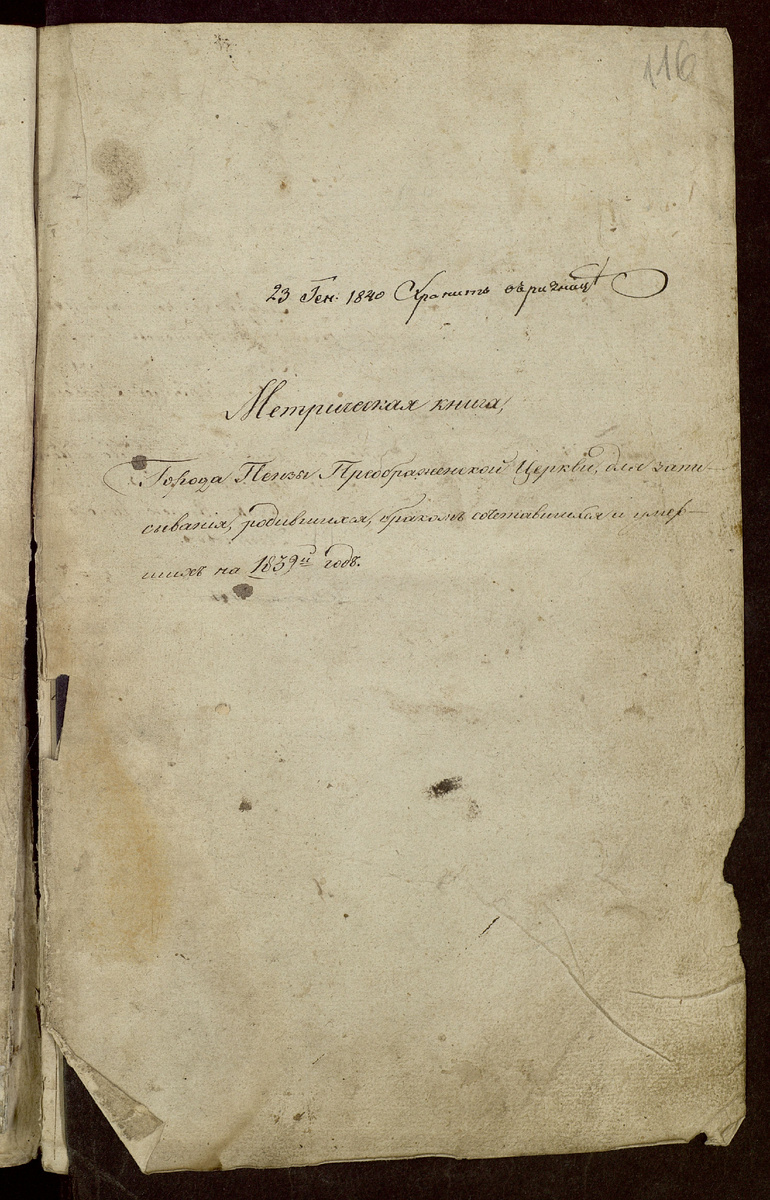 116
23 Ген. 1840 Хранить въ ризницѣ
Метрическая книга,
Города Пензы Преображенской Церкви, для запи-
сыванія, родившихся, бракомъ сочетавшихся и умер-
шихъ на 1839й годъ.